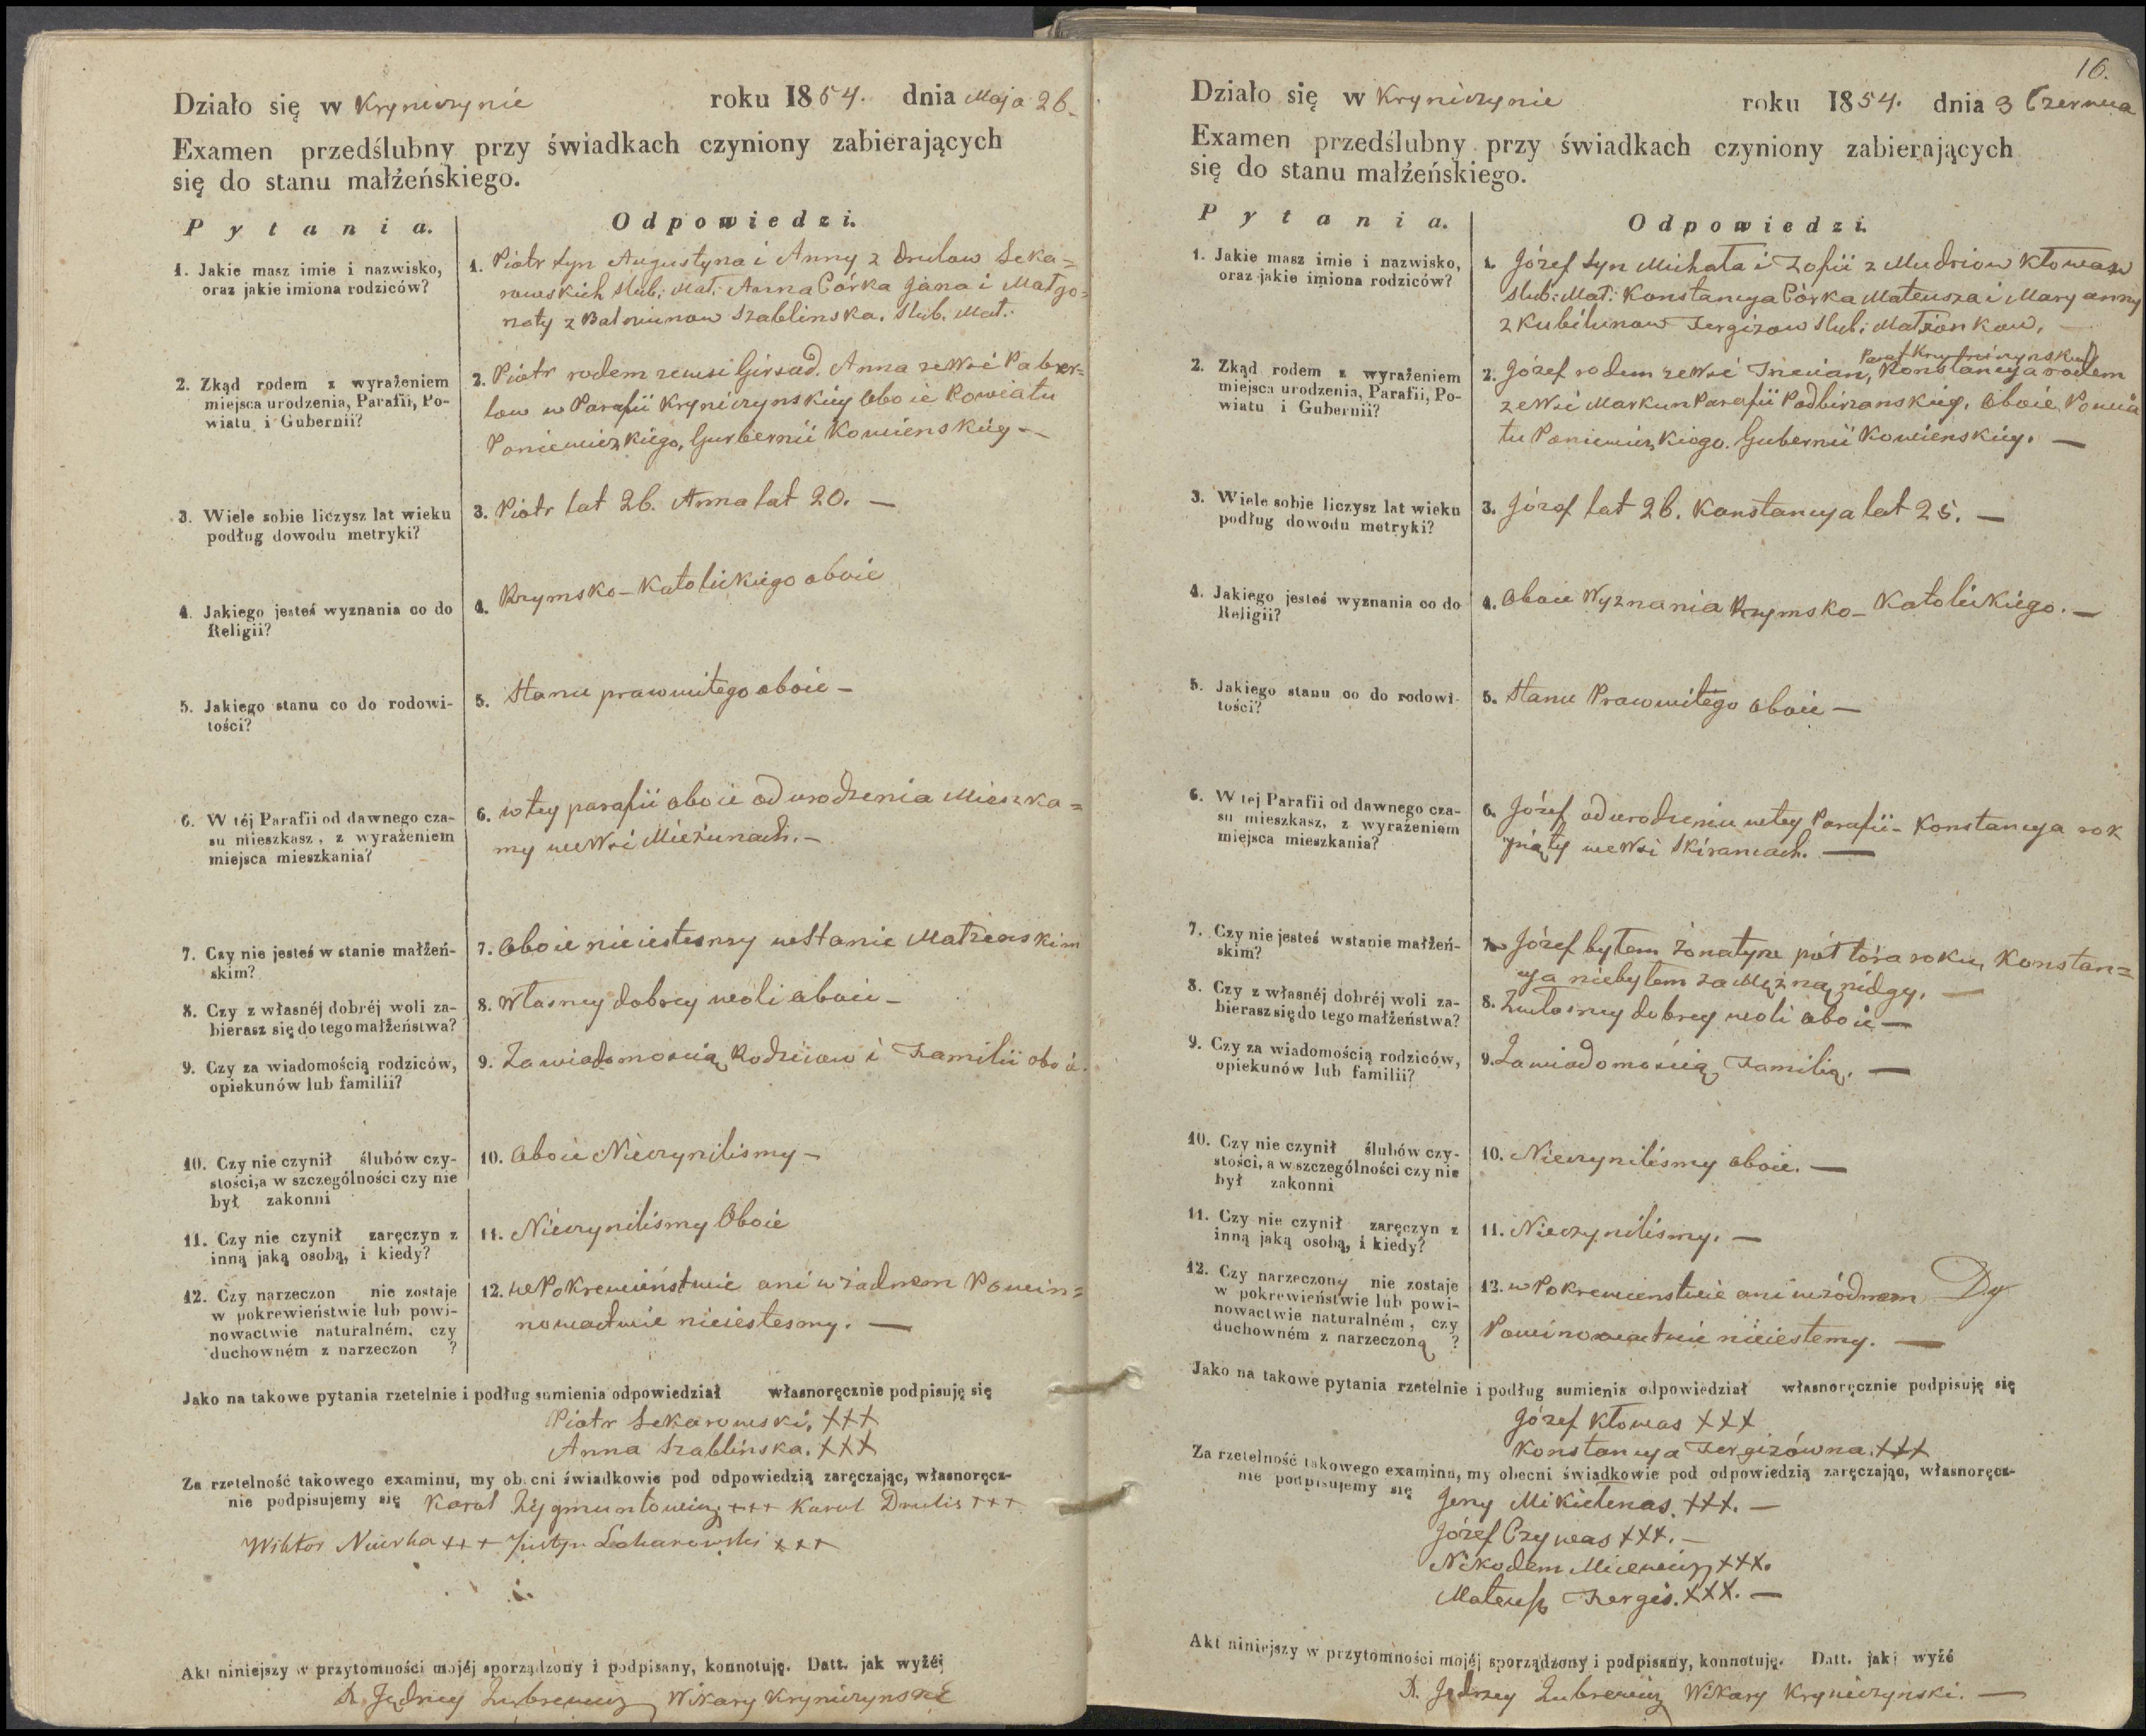 Działo się w Kryniczynie roku 1854. dnia Maja 26.
Examen przedślubny przy świadkach czyniony zabierających
się do stanu małżeńskiego.
Pytania. Odpowiedzi.
1. Jakie masz imie i nazwisko,
oraz jakie imiona rodziców?
1. Piotr Syn Augustyna i Anny z Drulow Seka=
rowskich Slub: Mat: Anna Córka Jana i Małgo=
rzaty z Szablinska. Slub. Mat.
2. Zkąd rodem z wyrażeniem
miejsca urodzenia, Parafii, Po-
wiatu i Gubernii?
2. Piotr rodem zewsi Girsad. Anna zeWsi
w Parafii Kryniczynskiey oboie Powiatu
Poniewiezkiego, Gurbernii Kowienskiey —
3. Wiele sobie liczysz lat wieku
podług dowodu metryki?
3. Piotr lat 26. Anna lat 20. —
4. Jakiego jesteś wyznania co do
Religii?
4. Rzymsko-Katolickiego oboie
5. Jakiego stanu co do rodowi-
tości?
5. Stanu prawowitego oboie —
6. W téj Parafii od dawnego cza-
su mieszkasz, z wyrażeniem
miejsca mieszkania?
6. w tey parafii oboie od urodzenia Mieszka=
my weWsi Mieżunach. —
7. Czy nie jesteś w stanie małżeń-
skim?
7. Oboie nieiestesmy wStanie Małżenskim
8. Czy z własnéj dobréj woli za-
bierasz się do tego małżeństwa?
8. Własney dobrey woli oboie —
9. Czy za wiadomością rodziców,
opiekunów lub familii?
9. Zawiadomoscią Rodzicow i Familii oboie.
10. Czy nie czynił ślubów czy-
stości, a w szczególności czy nie
był zakonni
10. Oboie Nieczynilismy —
11. Czy nie czynił zaręczyn z
inną jaką osobą, i kiedy?
11. Nieczynilismy Oboie
12. Czy narzeczon nie zostaje
w pokrewieństwie lub powi-
nowactwie naturalném, czy
duchowném z narzeczon ?
12. wPokrewieństwie ani w żadnem Powin=
nowactwie nieiestesmy. —
Jako na takowe pytania rzetelnie i podług sumienia odpowiedział własnoręcznie podpisuję się
Piotr Sekarowski, +++
Anna Szablińska. +++
Za rzetelność takowego examinu, my obecni świadkowie pod odpowiedzią zaręczając, własnoręcz-
nie podpisujemy się Karol Zygmuntowicz +++ Karol Drulis +++
Wiktor +++ Justyn +++
Akt niniejszy w przytomności mojéj sporządzony i podpisany, konnotuję. Datt. jak wyżéj
X. Jędrzey Zubrewicz Wikary Kryniczynski
16.
Działo się w Kryniczynie roku 1854. dnia 3 Czerwca
Examen przedślubny przy świadkach czyniony zabierających
się do stanu małżeńskiego.
Pytania. Odpowiedzi.
1. Jakie masz imie i nazwisko,
oraz jakie imiona rodziców?
1. Józef Syn Michała i Zofii z Mudriow Kłowasow
Slub: Mał: Konstancya Córka Mateusza i Maryanny
z Kubilunow Szergizow Slub: Małżonkow. —
2. Zkąd rodem z wyrażeniem
miejsca urodzenia, Parafii, Po-
wiatu i Gubernii?
Paraf Kryniczynskiey
2. Józef rodem zeWsi Konstancya rodem
zeWsi Markun Parafii Podbirzanskiey. Oboie Powia
tu Poniewiezkiego. Gubernii Kowienskiey. —
3. Wiele sobie liczysz lat wieku
podług dowodu metryki?
3. Józef lat 26. Konstancya lat 25. —
4. Jakiego jesteś wyznania co do
Religii?
4. Oboie Wyznania Rzymsko-Katolickiego. —
5. Jakiego stanu co do rodowi-
tości?
5. Stanu Prawowitego oboie —
6. W tej Parafii od dawnego cza-
su mieszkasz, z wyrażeniem
miejsca mieszkania?
6. Józef od urodzeniu wtey Parafii - Konstancya rok
piąty weWsi Skiramach. —
7. Czy nie jesteś w stanie małżeń-
skim?
7. Józef byłem żonatym puł tora roku, Konstan=
cya niebyłem zaMężną nidgy. —
8. Czy z własnéj dobréj woli za-
bierasz się do tego małżeństwa?
8. Zwłasney dobrey woli oboie —
9. Czy za wiadomością rodziców,
opiekunów lub familii?
9. Zawiadomoscią Familią. —
10. Czy nie czynił ślubów czy-
stości, a w szczególności czy nie
był zakonni
10. Nieczynilismy oboie. —
11. Czy nie czynił zaręczyn z
inną jaką osobą, i kiedy?
11. Nieczynilismy. —
12. Czy narzeczony nie zostaje
w pokrewieństwie lub powi-
nowactwie naturalném, czy
duchowném z narzeczoną ?
12. w Pokrewienstwie ani wżódnem
Powinowactwie nieiestemy. —
Jako na takowe pytania rzetelnie i podług sumienia odpowiedział własnoręcznie podpisuję się
Józef Kłowas +++
Konstancya Szergizówna. +++
Za rzetelność takowego examinu, my obecni świadkowie pod odpowiedzią zaręczając, własnoręcz-
nie podpisujemy się Jerzy Mikielenas. +++. —
Józef Czywas +++. —
Nikodem Micewicz +++.
Mateusz Szergis. +++. —
Akt niniejszy w przytomności mojéj sporządzony i podpisany, konnotuję. Datt. jak wyżé
X. Jędrzey Zubrewicz Wikary Kryniczynski. —